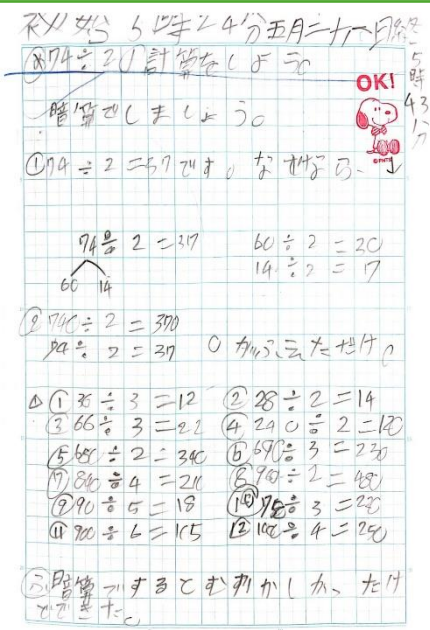 初始5時24分五月二十八日終
5時43分
め74÷2の計算をしよう。
OK!
暗算でしましょう。
①74÷2=37です。なぜなら、
74÷2=37 60÷2=30
60 14 14÷2=7
②740÷2=370
74÷2=37 0がふえただけ。
①36÷3=12 ②28÷2=14
③66÷3=22 ④240÷2=120
⑤680÷2=340 ⑥690÷3=230
⑦840÷4=210 ⑧960÷2=480
⑨90÷5=18 ⑩÷3=
⑪900÷6= ⑫100÷4=250
ふ暗算でするとむずかしかっただけ
どできた。